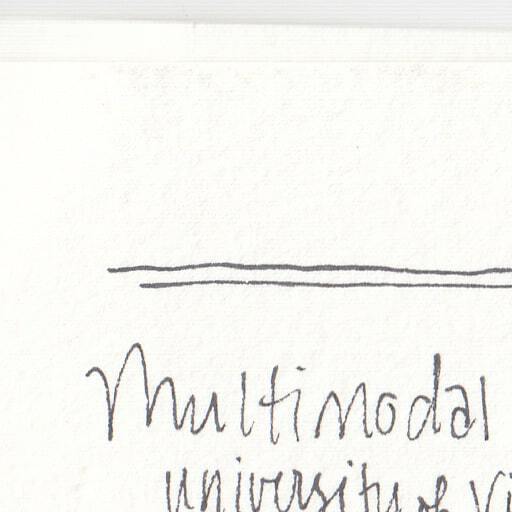 Multimodal
university of Vi